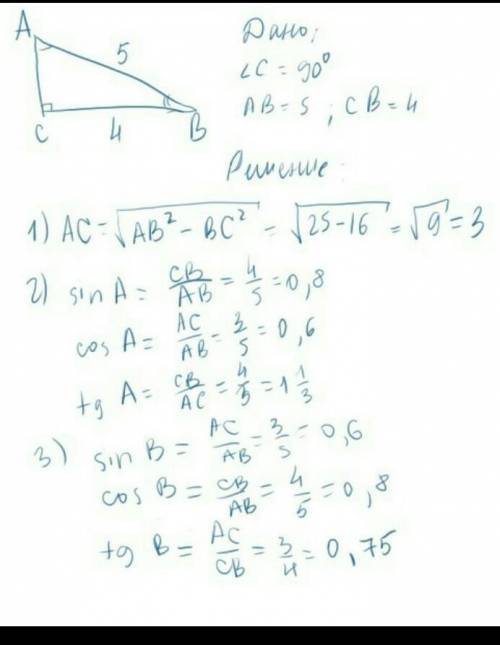 A
5
C
4
B
Дано:
∠C = 90°
AB = 5 ; CB = 4
Решение:
1) AC = √(AB² - BC²) = √(25-16) = √9 = 3
2) sin A = CB/AB = 4/5 = 0,8
cos A = AC/AB = 3/5 = 0,6
tg A = CB/AC = 4/3 = 1 1/3
3) sin B = AC/AB = 3/5 = 0,6
cos B = CB/AB = 4/5 = 0,8
tg B = AC/CB = 3/4 = 0,75